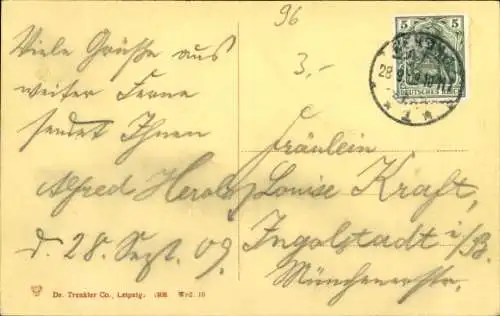 96
3,-
5 5
DEUTSCHES REICH
Viele Grüße aus
weiter Ferne
sendet Ihnen
Alfred Herold
d. 28. Sept. 09.
Fräulein
Louise Kraft,
Ingolstadt i/B.
Münchenerstr.
Dr. Trenkler Co., Leipzig. 1908 Wrd. 10